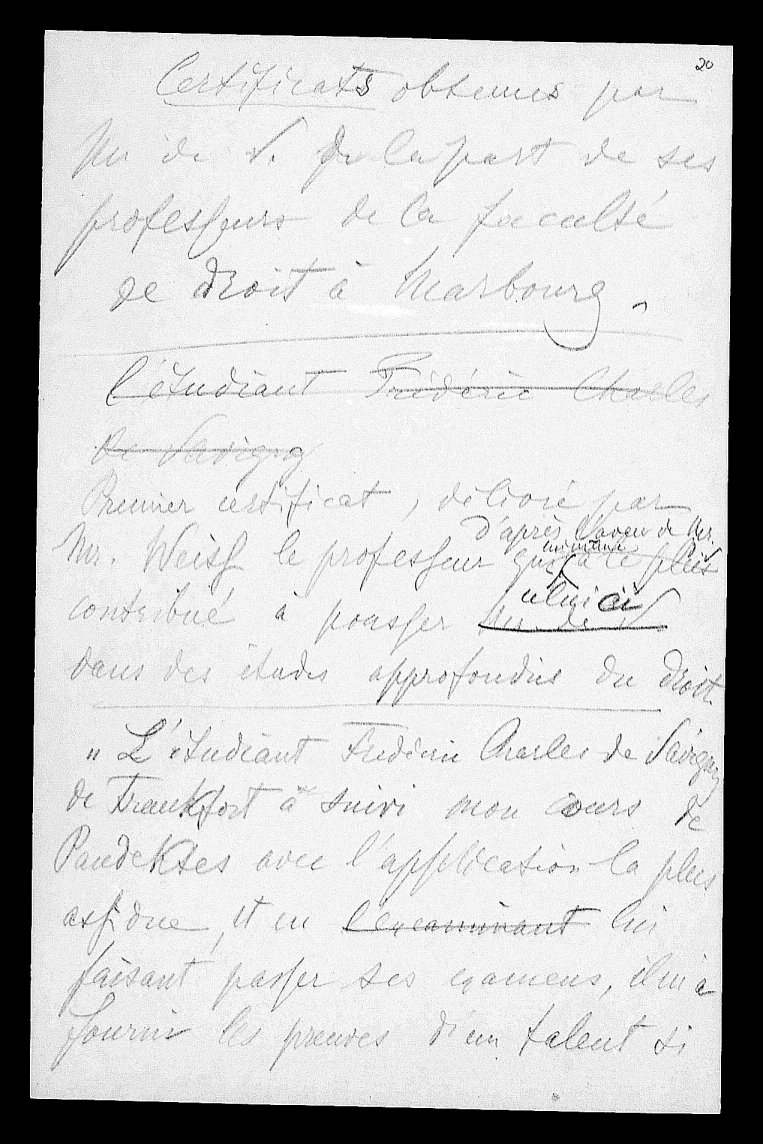 20
Certificats obtenus par
Mr de S. de la part de ses
professeurs de la faculté
de droit à Marbourg.
l'étudiant Frédéric Charles
de Savigny
Premier certificat, délivré par
d'après l'aveu de Mr.
Mr. Weiss le professeur qui a le plus
contribué à pousser Mr. de S
celui ci
dans des études approfondies du droit.
" L'étudiant Frédéric Charles de Savigny
de Frankfort a suivi mon cours de
Pandektes avec l'application la plus
assidue, et en l'examinant lui
faisant passer ses examens, il m'a
fourni les preuves d'un talent si